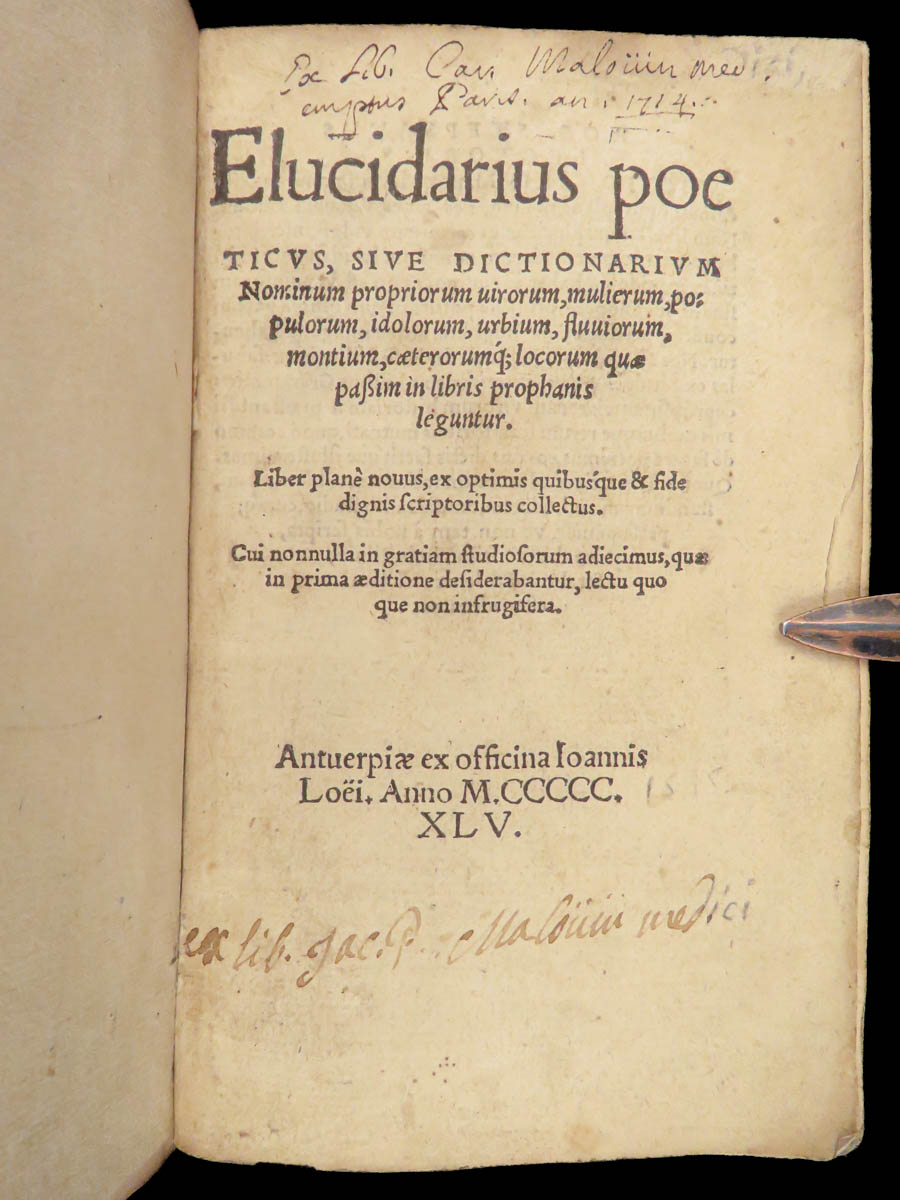 Ex Lib. Car. Maloüin med.
emptus Paris. an. 1714.
Elucidarius poe
TICVS, SIVE DICTIONARIVM
Nominum propriorum uirorum, mulierum, po⸗
pulorum, idolorum, urbium, fluuiorum,
montium, cæterorumq́; locorum quæ
paßim in libris prophanis
leguntur.
Liber planè nouus, ex optimis quibusq́ue & fide
dignis ſcriptoribus collectus.
Cui nonnulla in gratiam ſtudioſorum adiecimus, quæ
in prima æditione deſiderabantur, lectu quo
que non infrugifera.
Antuerpiæ ex officina Ioannis
Loëi. Anno M.CCCCC.
XLV.
ex lib. Jac. P. Maloüin medici